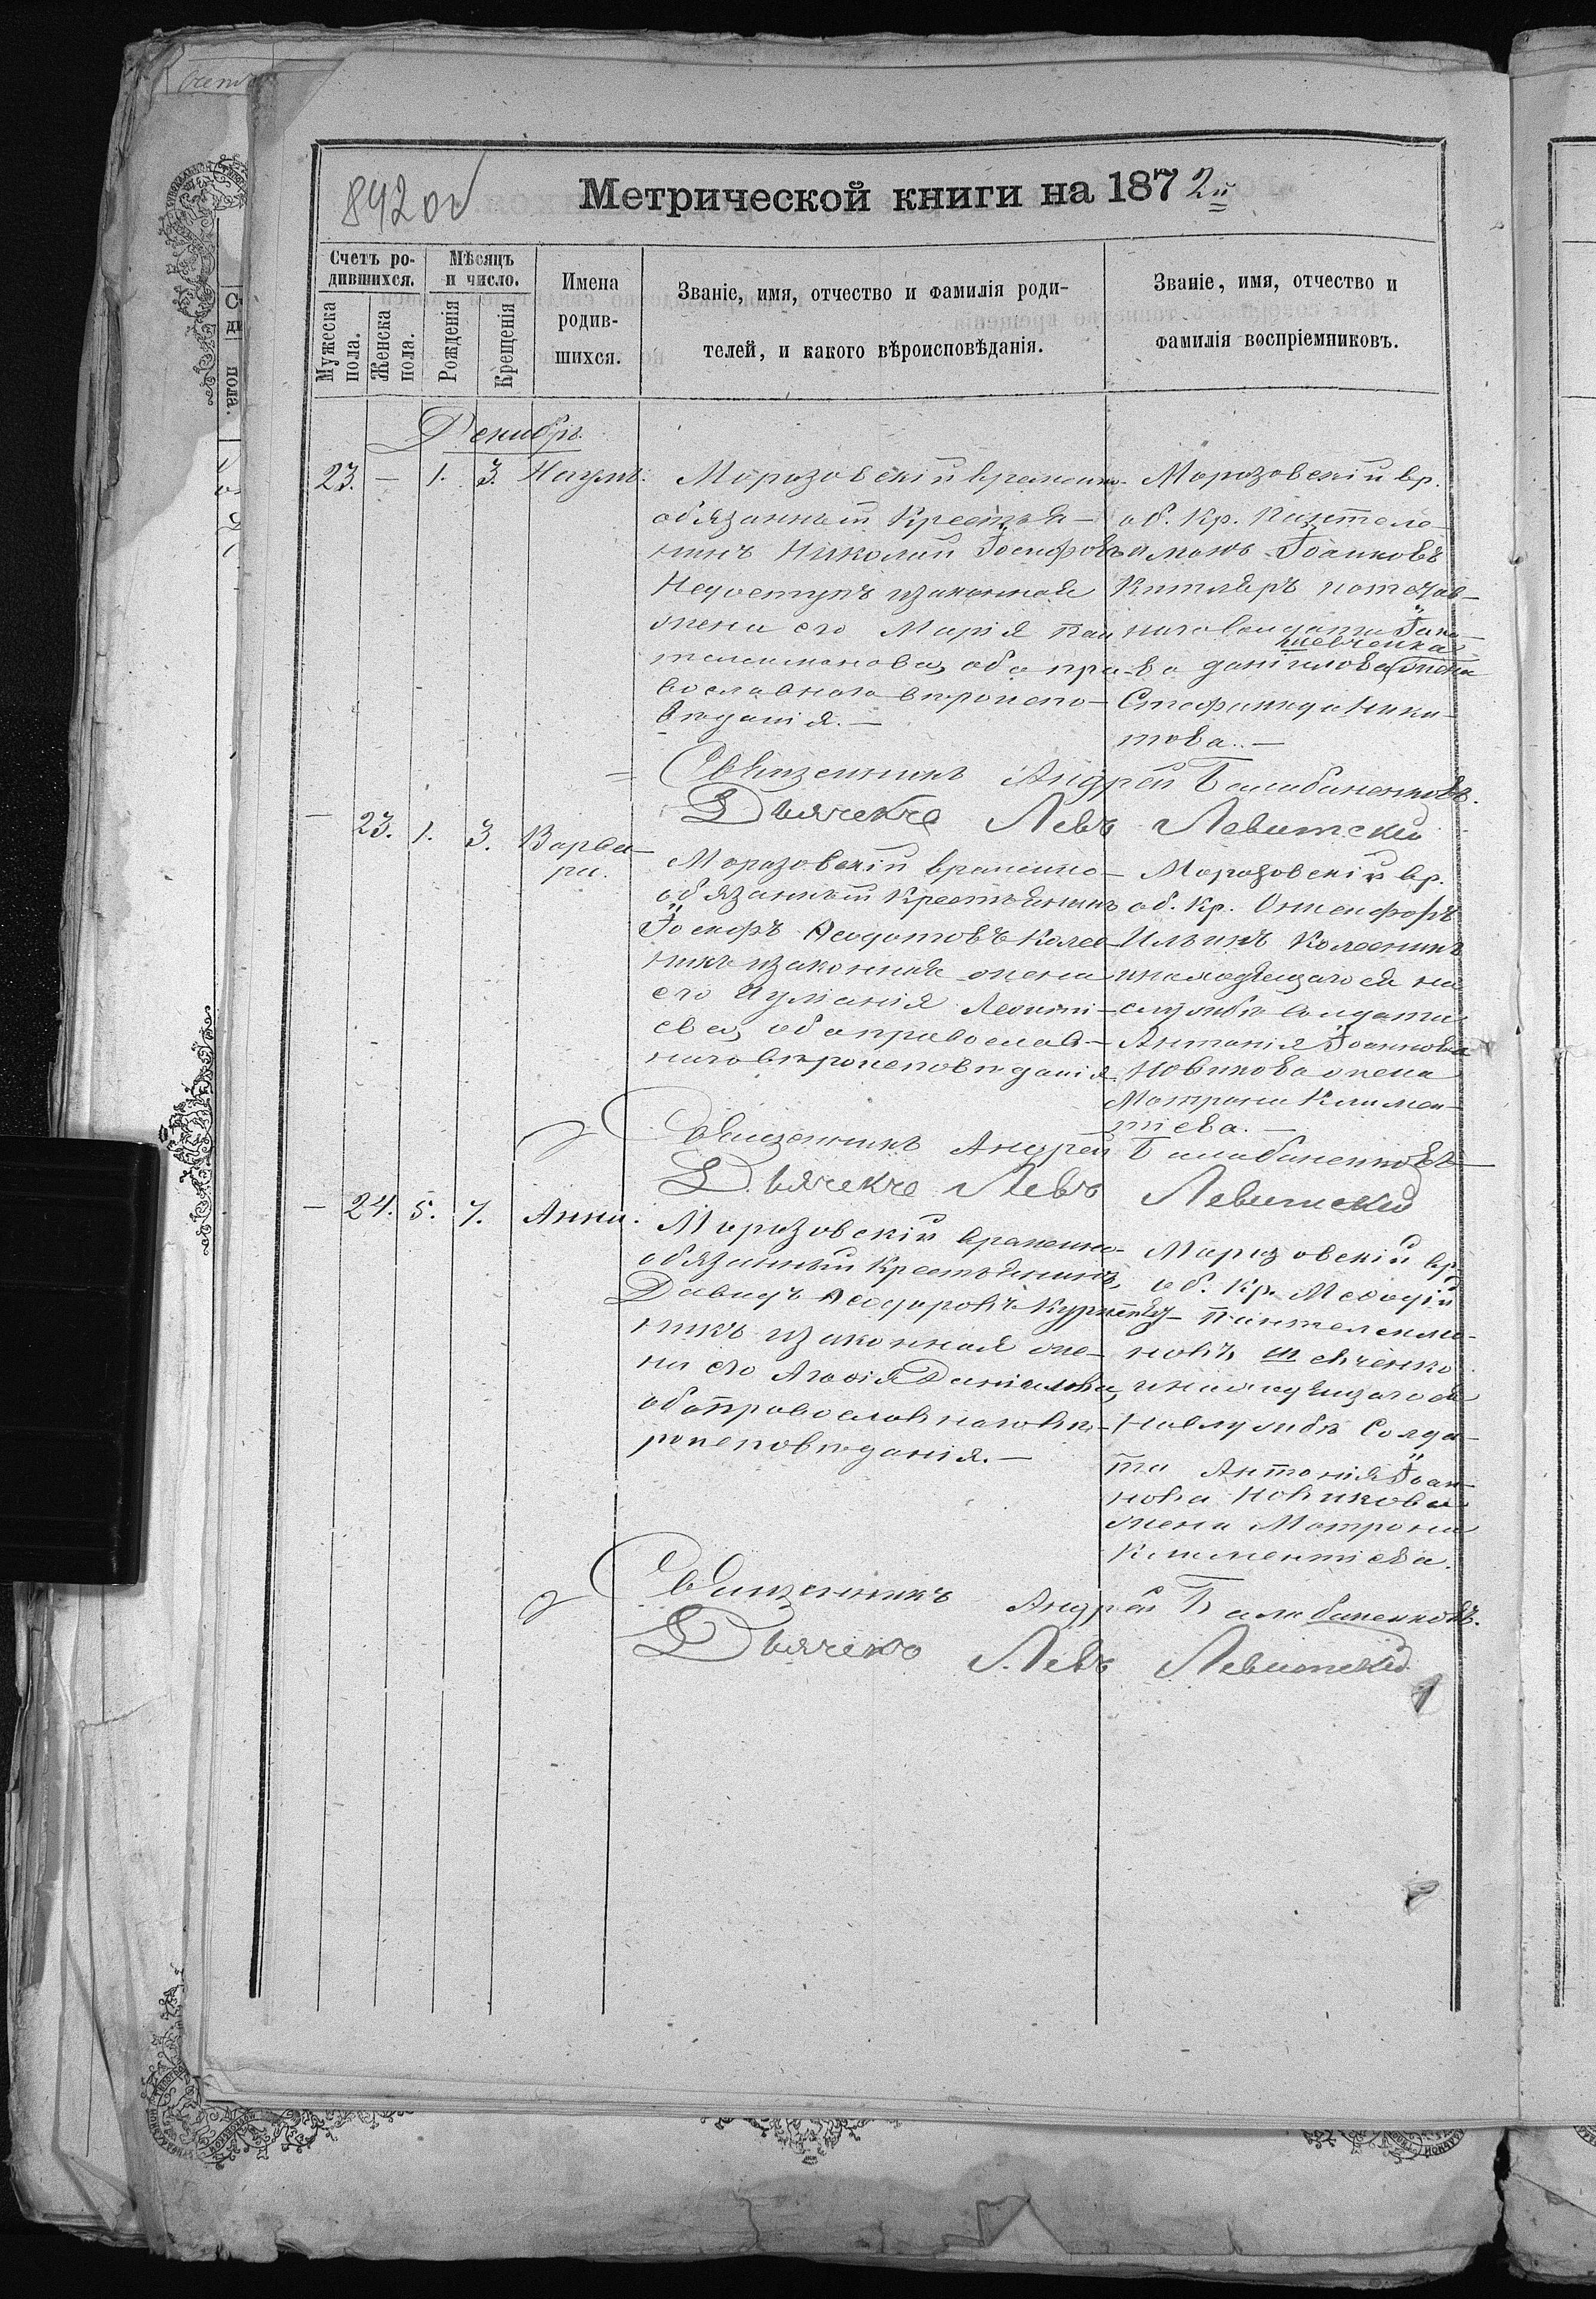 892 об
Метрической книги на 1872й
Счетъ ро-
дившихся.
Мужеска
пола.
Женска
пола.
Мѣсяцъ
и число.
Рожденія
Крещенія
Имена
родив-
шихся.
Званіе, имя, отчество и фамилія роди-
телей, и какого вѣроисповѣданія.
Званіе, имя, отчество и
фамилія воспріемниковъ.
Декабрь
23. — 1. 3. Наумъ.
Морозовскій временно-
обязанный Крестья-
нинъ Николай Іосифовъ
Недоступъ изаконная
жена его Марія Пан
телеимонова, оба пра-
вославнаго вѣроиспо-
вѣданія. —
Морозовскій вр.
об. Кр. Пантеле-
имонъ Іоанновъ
Китляръ
Шевченка
Данилова жена
Стефанида Ники-
това. —
Священникъ Андрей Балабаненковъ.
Дьячекъ Левъ Левитскій
— 23. 1. 3. Варва-
ра.
Морозовскій временно-
обязанный Крестьянинъ
Іосифъ Ѳеодотовъ Колес-
никъ изаконная жена
его Іуліанія Леонті-
ева, оба православ-
наго вѣроисповѣданія.
Морозовскій вр.
об. Кр. Онисифоръ
Ильинъ Колесникъ
инаходящагося на
службѣ солдата
Антонія Іоаннова
Новикова жена
Матрона Климен-
тіева. —
Священникъ Андрей Балабаненковъ
Дьячекъ Левъ Левитскій
— 24. 5. 7. Анна.
Морозовскій временно-
обязанный Крестьянинъ,
Давидъ Ѳеодоровъ
никъ изаконная же-
на его Агафія Даніилова,
оба православнаго вѣ-
роисповѣданія. —
Морозовскій вр.
об. Кр. Меѳодій
Пантелеимо-
новъ Шевченко
инаходящагося
на службѣ Солда-
та Антонія Іоан-
нова Новикова
жена Матрона
Климентіева.
Священникъ Андрей Балабаненковъ.
Дьячекъ Левъ Левитскій